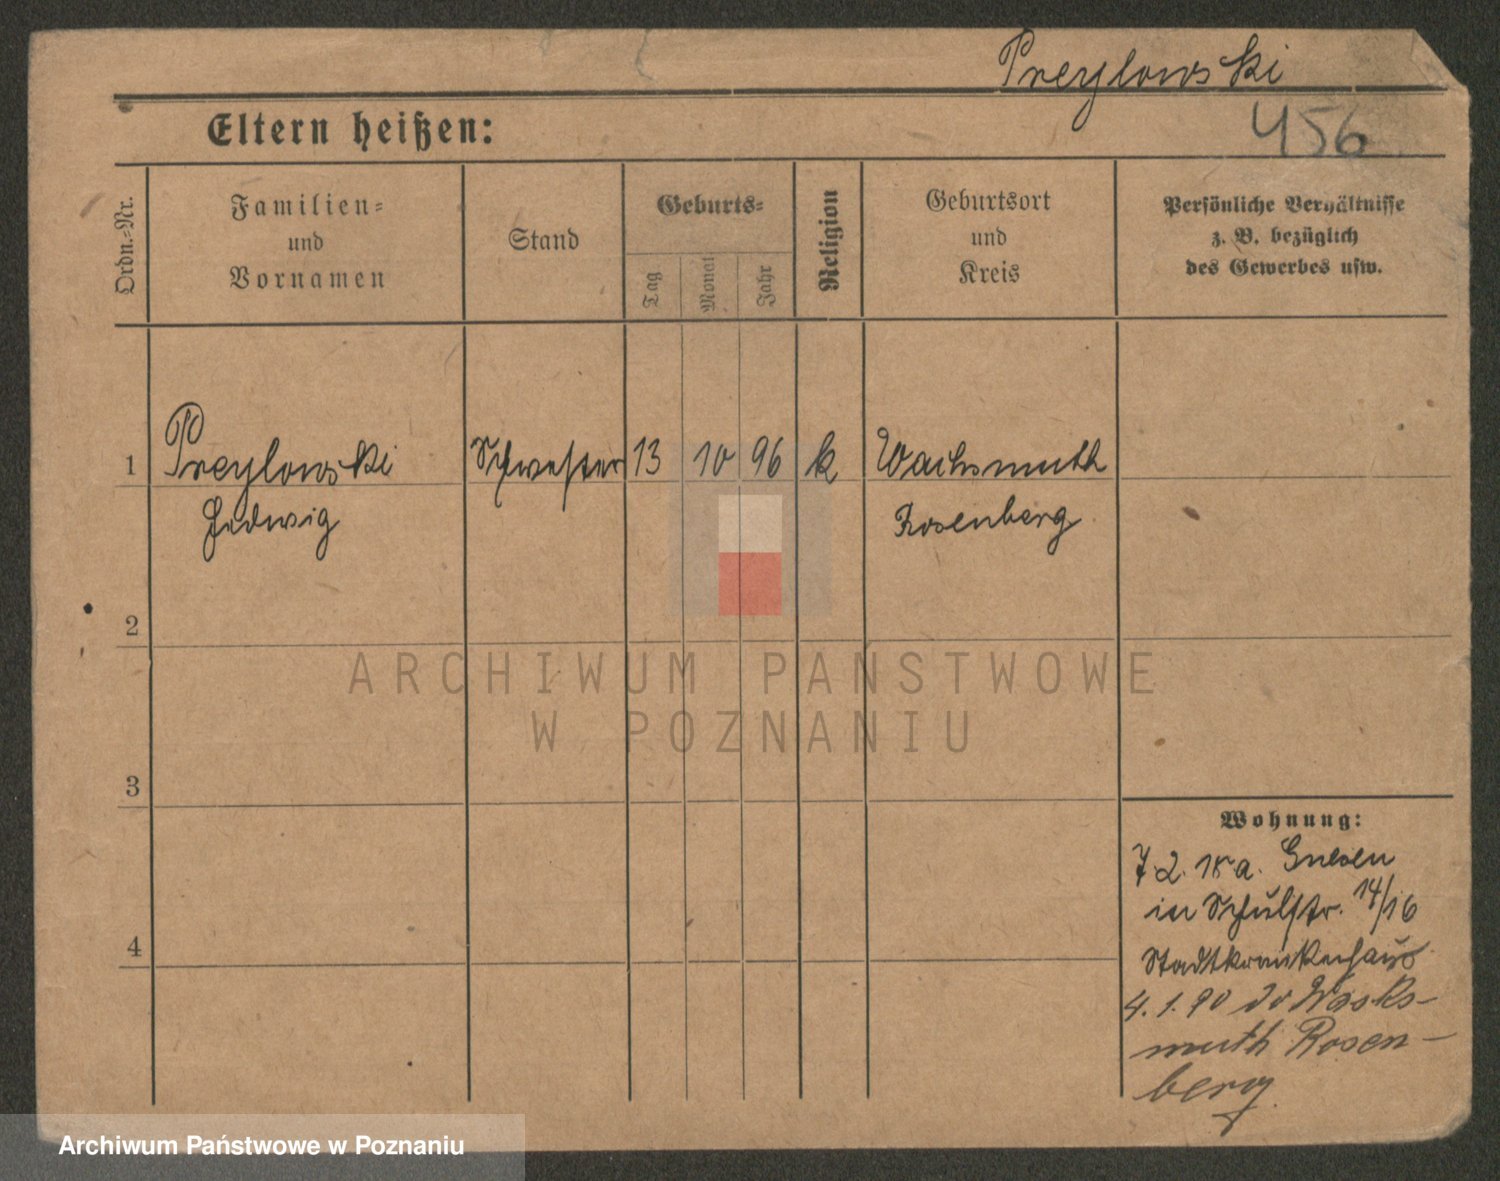 Preylowski
Eltern heißen:
456
Ordn.-Nr.
Familien-
und
Vornamen
Stand
Geburts-
Tag
Monat
Jahr
Religion
Geburtsort
und
Kreis
Persönliche Verhältnisse
z. B. bezüglich
des Gewerbes usw.
1 Preylowski Schwester 13 10 96 k Wachsmuth
Hedwig Rosenberg
2
3
4
ARCHIWUM PAŃSTWOWE
W POZNANIU
Wohnung:
7.2. 18 a. Gnesen
in Schulstr. 14/16
Stadtkrankenhaus
4.1.20 do Waks-
muth Rosen-
berg
Archiwum Państwowe w Poznaniu